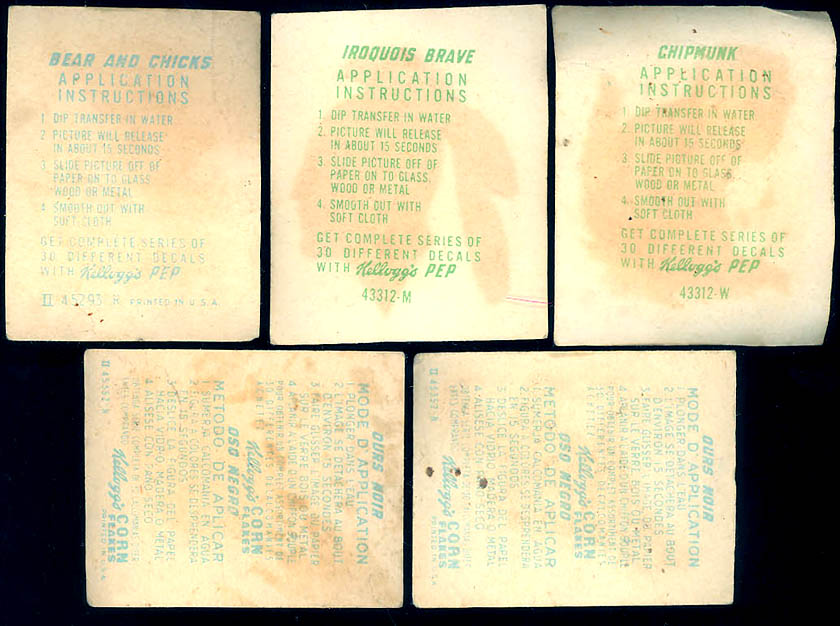 BEAR AND CHICKS
APPLICATION
INSTRUCTIONS
1. DIP TRANSFER IN WATER
2. PICTURE WILL RELEASE
IN ABOUT 15 SECONDS
3. SLIDE PICTURE OFF OF
PAPER ON TO GLASS,
WOOD OR METAL
4. SMOOTH OUT WITH
SOFT CLOTH
GET COMPLETE SERIES OF
30 DIFFERENT DECALS
WITH Kellogg's PEP
II 45293 PRINTED IN U.S.A.
IROQUOIS BRAVE
APPLICATION
INSTRUCTIONS
1. DIP TRANSFER IN WATER
2. PICTURE WILL RELEASE
IN ABOUT 15 SECONDS
3. SLIDE PICTURE OFF OF
PAPER ON TO GLASS,
WOOD OR METAL
4. SMOOTH OUT WITH
SOFT CLOTH
GET COMPLETE SERIES OF
30 DIFFERENT DECALS
WITH Kellogg's PEP
43312-M
CHIPMUNK
APPLICATION
INSTRUCTIONS
1. DIP TRANSFER IN WATER
2. PICTURE WILL RELEASE
IN ABOUT 15 SECONDS
3. SLIDE PICTURE OFF OF
PAPER ON TO GLASS,
WOOD OR METAL
4. SMOOTH OUT WITH
SOFT CLOTH
GET COMPLETE SERIES OF
30 DIFFERENT DECALS
WITH Kellogg's PEP
43312-W
OURS NOIR
MODE D'APPLICATION
1. PLONGER DANS L'EAU
2. L'IMAGE SE DETACHERA AU BOUT
D'ENVIRON 15 SECONDES
3. FAIRE GLISSER L'IMAGE DU PAPIER
SUR LE VERRE BOIS OU METAL
4. APLANIR A L'AIDE D'UN CHIFFON SOUPLE
Kellogg's CORN
FLAKES
OSO NEGRO
METODO DE APLICAR
1. SUMERJA CALOMANIA EN AGUA
2. FIGURA A COLORES SE DESPRENDERA
EN 15 SEGUNDOS
3. DESLICE LA FIGURA DEL PAPEL
HACIA VIDRIO MADERA O METAL
4. ALISESE CON PANO SECO
Kellogg's CORN
FLAKES
PRINTED IN U.S.A.
OURS NOIR
MODE D'APPLICATION
1. PLONGER DANS L'EAU
2. L'IMAGE SE DETACHERA AU BOUT
D'ENVIRON 15 SECONDES
3. FAIRE GLISSER L'IMAGE DE PAPIER
SUR LE VERRE BOIS OU METAL
4. APLANIR A L'AIDE D'UN CHIFFON SOUPLE
Kellogg's CORN
FLAKES
OSO NEGRO
METODO DE APLICAR
1. SUMERJA CALOMANIA EN AGUA
2. FIGURA A COLORES SE DESPRENDERA
EN 15 SEGUNDOS
3. DESLICE LA FIGURA DEL PAPEL
HACIA VIDRIO MADERA O METAL
4. ALISESE CON PANO SECO
Kellogg's CORN
FLAKES
PRINTED IN U.S.A.